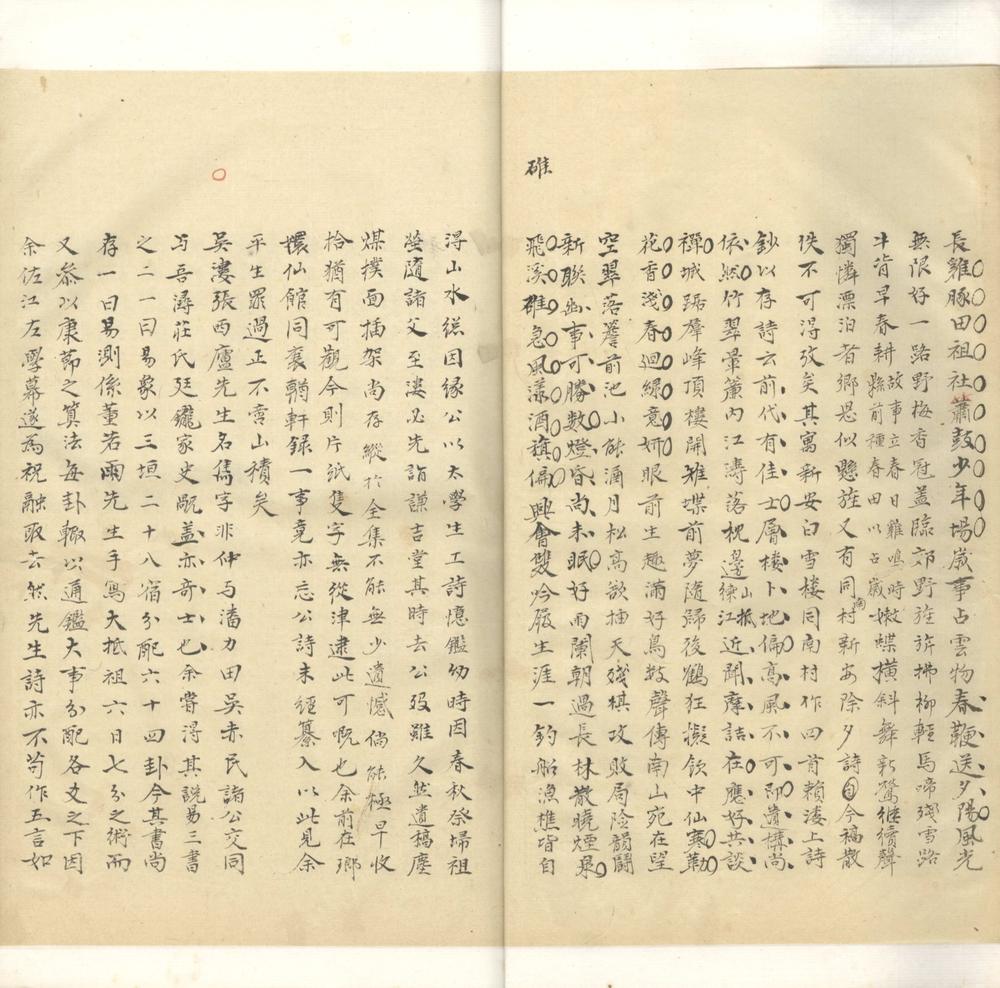 長雞豚田祖社蕭鼓少年場歲事占雲物春鞭送夕陽風光
無限好一路野梅香冠蓋臨郊野旌旂拂柳輕馬啼殘雪路
牛背早春耕故事立春日雞鳴時縣前種春田以占歲嫩蝶橫斜舞新鶯繼續聲
獨憐漂泊者鄉思似懸旌又有同南村新安除夕詩自今稿散
佚不可得攷矣其寓新安白雪樓同南村作四首賴淩上詩
鈔以存詩云前代有佳士層樓卜地偏高風不可即遺構尚
依然竹翠暈簾內江濤落枕邊練江山抵近聞摩詰在應好共談
禪城踞羣峰頂樓開雉堞前夢隨歸後鶴狂擬飲中仙寒勒
花香淺春迴綠意妍眼前生趣滿好鳥數聲傳南山宛在望
空翠落簷前池小能涵月松高欲抽天殘棋攻敗局險韻鬪
新聯幽事可勝數燈昏尚未眠好雨闌朝過長林散曉煙泉
飛溪碓急風漾酒旗偏興會雙吟屐生涯一釣船漁樵皆自
碓
得山水綵因緣公以太學生工詩憶鑑幼時因春秋祭埽祖
塋隨諸父至淒必先詣謙吉堂其時去公歿雖久然遺稿塵
煤撲面插架尚存縱於全集不能無少遺憾倘能極早收
拾猶有可觀今則片紙隻字無從津逮此可慨也余前在鄉
擐仙館同裒輶軒錄一事竟亦忘公詩未經纂入以此見余
平生罪過正不啻山積矣
吳淒張西廬先生名雋字非仲与潘力田吳赤民諸公交同
与吾潯莊氏廷鑨家史厰盖亦奇士也余嘗得其說易三書
之二一曰易象以三垣二十八宿分配六十四卦今其書尚
存一曰易測係董若雨先生手寫大抵祖六日七分之術而
又叅以康節之算法每卦輙以通鑑大事分配各爻之下因
余佐江左學幕遂為祝融取去然先生詩亦不苟作五言如